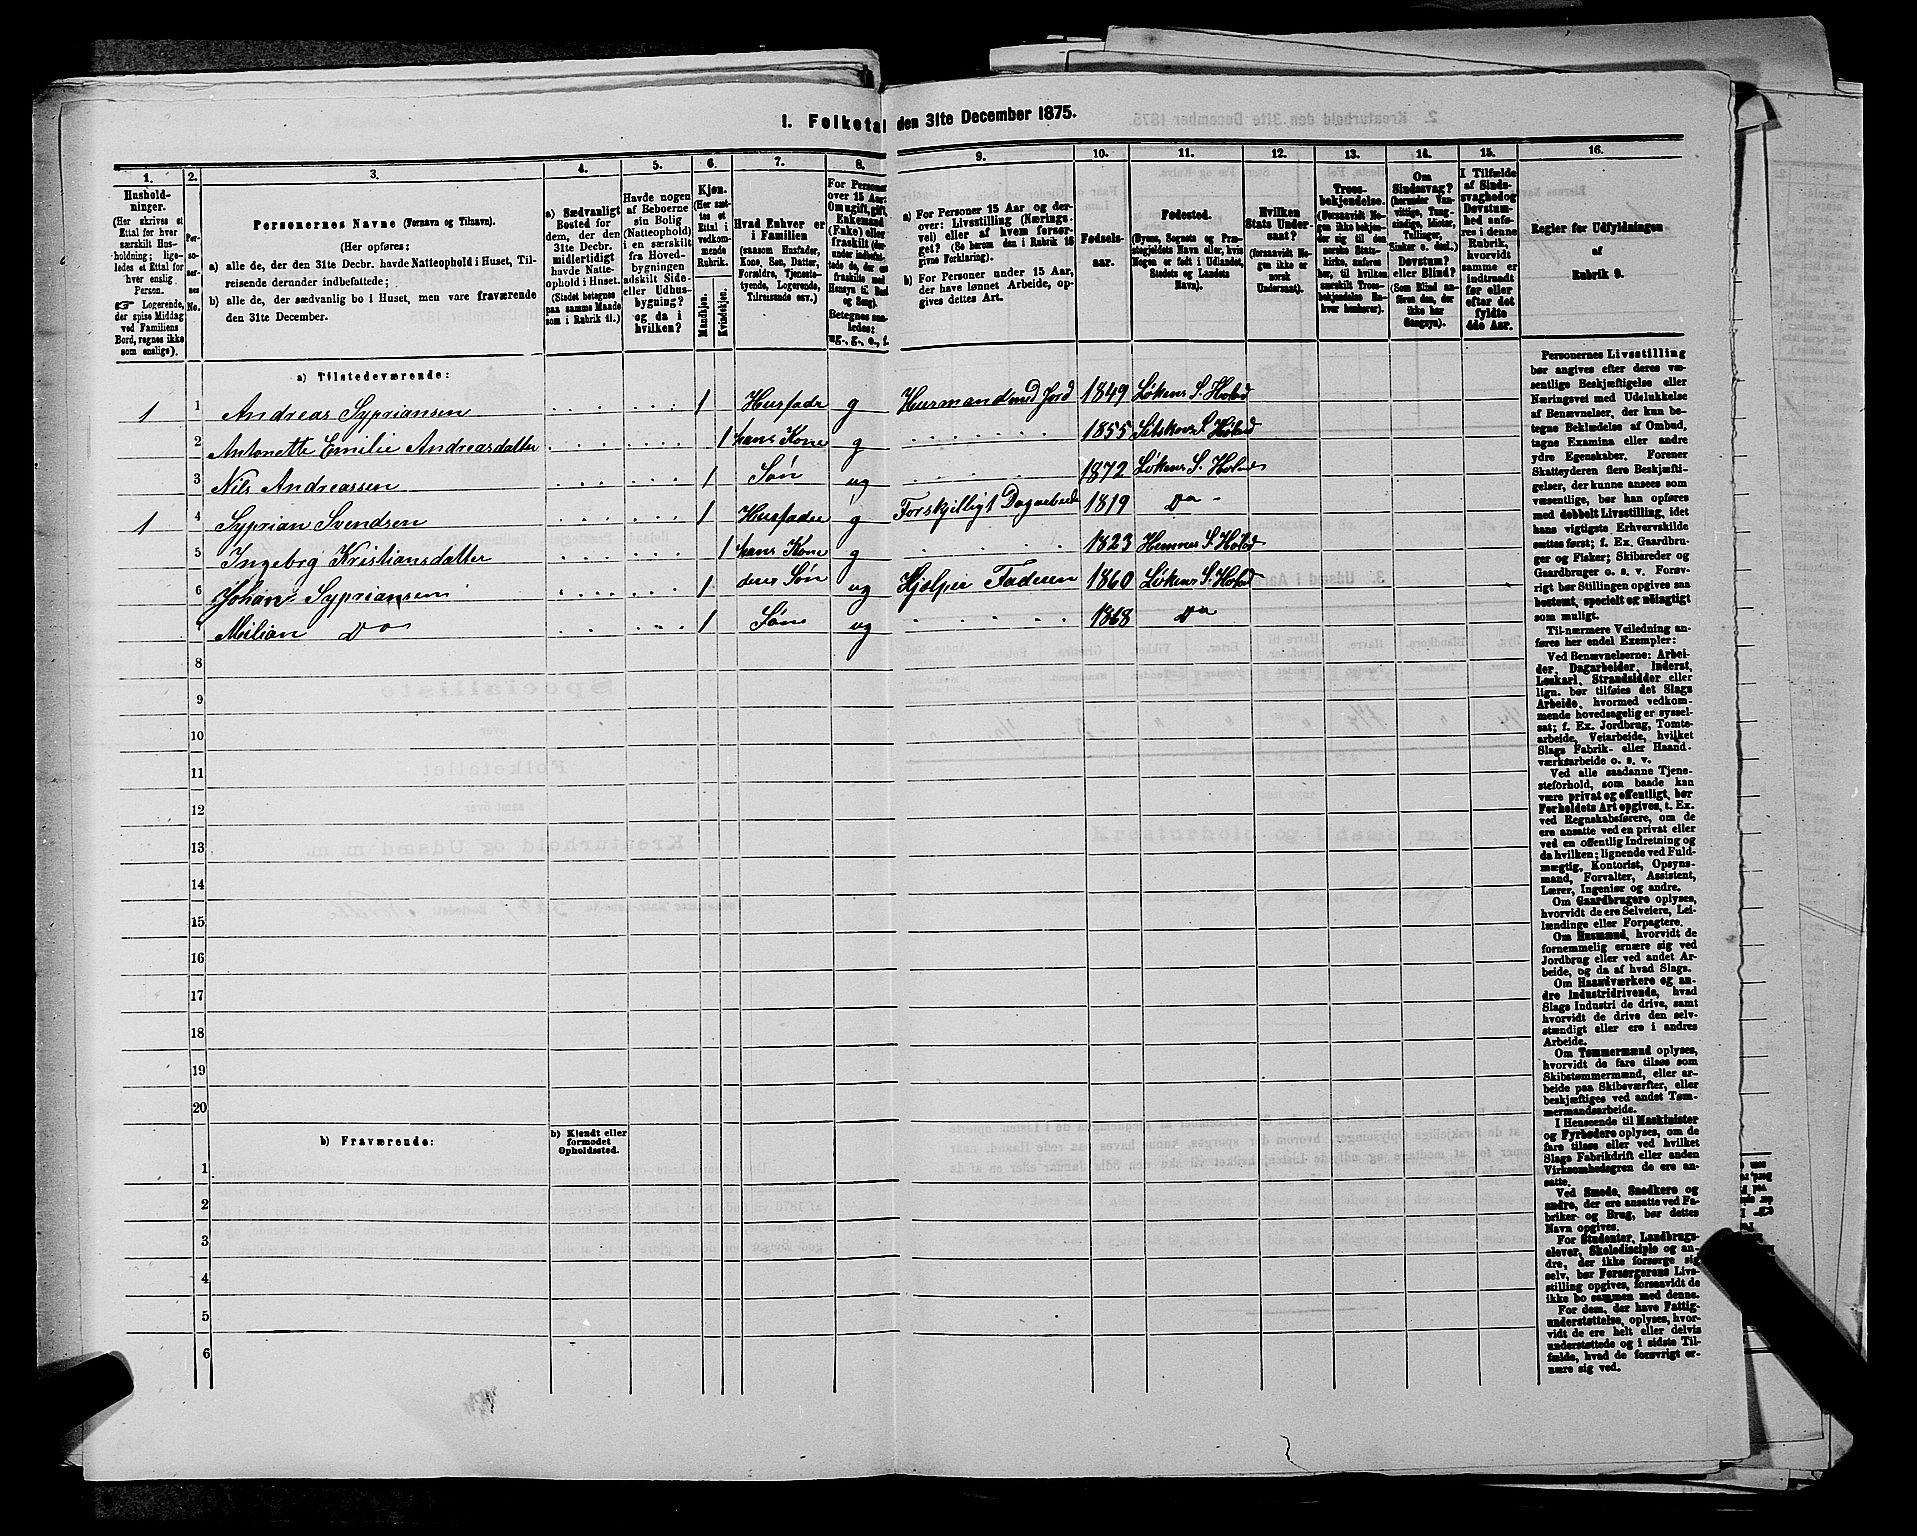 I. Folketal den 31te December 1875.
1. 2. 3. 4. 5. 6. 7. 8. 9. 10. 11. 12. 13. 14. 15. 16.
Husholdninger.
(Her skrives et
Ettal for hver
særskilt Husholdning; ligeledes et Ettal for
hver enslig
Person.
☞ Logerende,
der spise Middag
ved Familiens
Bord, regnes ikke
som enslige).
Personernes No.
Personernes Navne (Fornavn og Tilnavn).
(Her opføres:
a) alle de, der den 31te Decbr. havde Natteophold i Huset, Tilreisende derunder indbefattede;
b) alle de, der sædvanlig bo i Huset, men vare fraværende
den 31te December.
a) Sædvanligt
Bosted for
dem, der den
31te Decbr.
midlertidigt
havde Natteophold i Huset.
(Stedet betegnes
paa samme Maade
som i Rubrik 11.)
Havde nogen
af Beboerne
sin Bolig
(Natteophold)
i en særskilt
fra Hovedbygningen
adskilt Side-
eller Udhusbygning?
og da i
hvilken?
Kjøn.
(Her sættes et
Ettal i
vedkommende
Rubrik.
Mandkjøn.
Kvindekjøn.
Hvad Enhver er
i Familien
(saasom Husfader,
Kone, Søn, Datter,
Forældre, Tjenestetyende, Logerende,
Tilreisende osv.)
For Personer
over 15 Aar:
Om ugift, gift,
Enkemand
(Enke) eller
fraskilt (derunder indbefattede de, der ere
fraskilte med
Hensyn til Bord
og Seng).
Betegnes saaledes:
ug., g., e., f.
a) For Personer 15 Aar og derover: Livsstilling (Næringsvei) eller af hvem forsørget? (Se herom den i Rubrik 16
givne Forklaring).
b) For Personer under 15 Aar,
der have lønnet Arbeide, opgives dettes Art.
Fødselsaar.
Fødested.
(Byens, Sognets og Præstegjeldets Navn eller, hvis
Nogen er født i Udlandet,
Stedets og Landets
Navn).
Hvilken
Stats Undersaat?
(forsaavidt Nogen ikke er
norsk
Undersaat).
Troesbekjendelse.
(Forsaavidt Nogen ikke bekjender sig til den
norske Statskirke, anføres
her, til hvilken
særskilt Troesbekjendelse Enhver henhører).
Om
Sindssvag?
(herunder Vanvittige, Tungsindige, Idioter,
Tullinger,
Sinker o. desl.)
Døvstum?
eller Blind?
(Som Blind anføres den, der
ikke har
Gangsyn).
I Tilfælde
af Sindssvaghed og
Døvstumhed anføres i denne
Rubrik,
hvorvidt
samme er
indtraadt
før eller
efter det
fyldte
4de Aar.
Regler for Udfyldningen
af
Rubrik 9.
a) Tilstedeværende:
1 1 Andreas Sypriansen 1 Husfader g Husmand med Jord 1849 Løkens S. Holand
2 Antonette Emilie Andreasdatter 1 hans Kone g 1855 Setskovs S. Høland
3 Nils Andreassen 1 Søn ug 1872 Løkens S. Holand
1 4 Syprian Svendsen 1 Husfader g Forskjelligt Dagarbeide 1819 Do -
5 Ingeborg Kristiansdatter 1 hans Kone g 1823 Hemnes S. Holand
6 Johan Sypriansen 1 deres Søn ug Hjelper Faderen 1860 Løkens S. Holand
Milian Do 1 Søn ug 1868 Do
8
9
10
11
12
13
14
15
16
17
18
19
20
b) Fraværende:
b) Kjendt eller
formodet
Opholdssted.
1
2
3
4
5
6
Personernes Livsstilling
bør angives efter deres væsentlige Beskjæftigelse eller
Næringsvei med Udelukkelse
af Benævnelser, der kun betegne Beklædelse af Ombud,
tagne Examina eller andre
ydre Egenskaber. Forener
Skatteyderen flere Beskjæftigelser, der kunne ansees som
væsentlige, bør han opføres
med dobbelt Livsstilling, idet
hans vigtigste Erhvervskilde
sættes først; f. Ex. Gaardbruger og Fisker; Skibsreder og
Gaardbruger o. s. v. Forøvrigt bør Stillingen opgives saa
bestemt, specielt og nøiagtigt
som muligt.
Til nærmere Veiledning anføres her endel Exempler:
Ved Benævnelserne: Arbeider, Dagarbeider, Inderst,
Løskarl, Strandsidder eller
lign. bør tilføies det Slags
Arbeide, hvormed vedkommende hovedsagelig er sysselsat; f. Ex. Jordbrug, Tomtearbeide, Veiarbeide, hvilket
Slags Fabrik- eller Haandværksarbeide o. s. v.
Ved alle saadanne Tjenesteforhold, som baade kan
være privat og offentligt, bør
Forholdets Art opgives, t. Ex.
ved Regnskabsførere, om de
ere ansatte ved en privat eller
ved en offentlig Indretning og
da hvilken; lignende ved Fuldmægtig, Kontorist, Opsynsmand, Forvalter, Assistent,
Lærer, Ingeniør og andre.
Om Gaardbrugere oplyses,
hvorvidt de ere Selveiere, Leilændinge eller Forpagtere.
Om Husmænd, hvorvidt de
fornemmelig ernære sig ved
Jordbrug eller ved andet Arbeide, og da af hvad Slags.
Om Haandværkere og andre Industridrivende, hvad
Slags Industri de drive, samt
hvorvidt de drive den selvstændigt eller ere i andres
Arbeide.
Om Tømmermænd oplyses,
hvorvidt de fare tilsøs som
Skibstømmermænd, eller arbeide paa Skibsværfter, eller
beskjæftiges ved andet Tømmermandsarbeide.
I Henseende til Maskinister
og Fyrbødere oplyses, om de
fare tilsøs eller ved hvilket
Slags Fabrikdrift eller anden
Virksomhedsgren de ere ansatte.
Ved Smede, Snedkere og
andre, der ere ansatte ved Fabriker og Brug, bør dettes
Navn opgives.
For Studenter, Landbrugselever, Skoledisciple og andre, der ikke forsørge sig
selv, bør Forsørgerens Livsstilling opgives, forsaavidt de
ikke bo sammen med denne.
For dem, der have Fattigunderstøttelse, oplyses, hvorvidt de ere helt eller delvis
understøttede og i sidste Tilfælde, hvad de forøvrigt ernære sig ved.